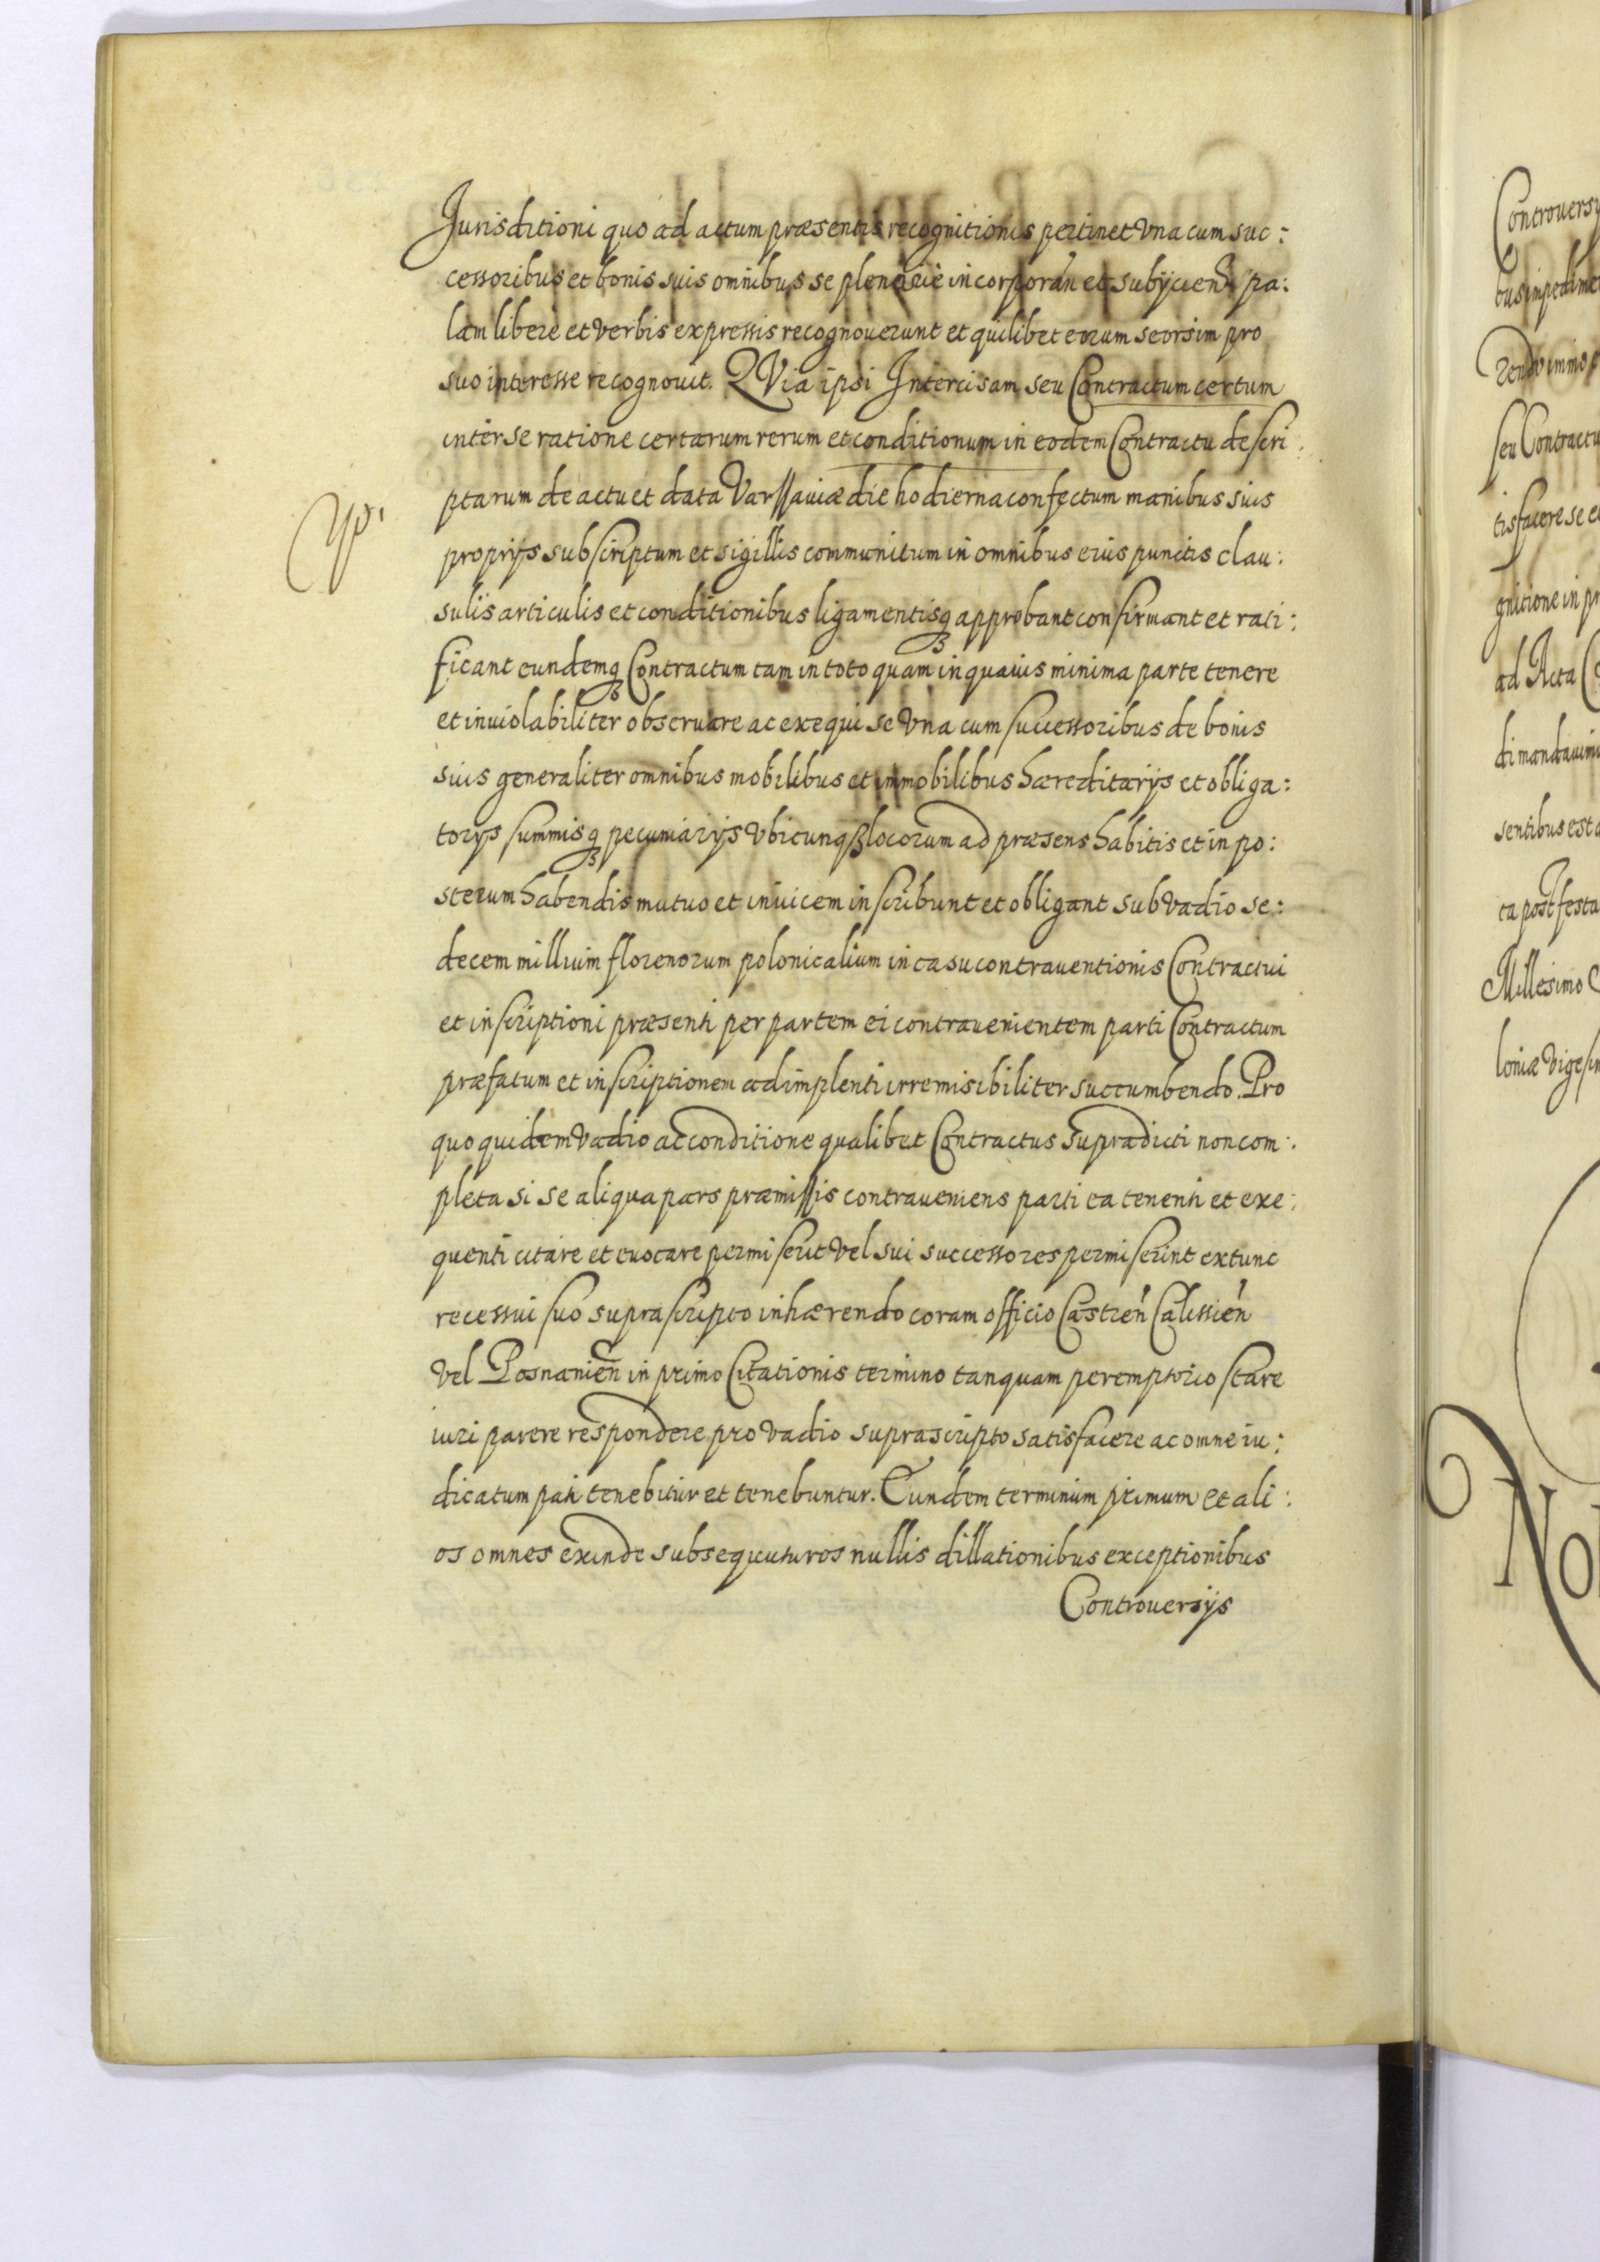 Jurisditioni quo ad actum præsentis recognitionis pertinet Vna cum suc:
cessoribus et bonis suis omnibus se plenarie incorporan et subÿcien pa:
lam libere et verbis expressis recognouerunt et quilibet eorum seorsim pro
suo interesse recognouit. QVia ipsi Intercisam seu Contractum certum
inter se ratione certarum rerum et conditionum in eodem Contractu descri:
ptarum de actu et data Varssauiæ die hodierna confectum manibus suis
proprÿs subscriptum et sigillis communitum in omnibus eius punctis clau:
sulis articulis et conditionibus ligamentisq3 approbant confirmant et rati:
ficant eundemq3 Contractum tam in toto quam in quauis minima parte tenere
et inuiolabiliter obseruare ac exequi se Vna cum successoribus de bonis
suis generaliter omnibus mobilibus et immobilibus hæreditarÿs et obliga:
torÿs summisq3 pecuniarÿs Vbicunq3 locorum ad præsens habitis et in po:
sterum habendis mutuo et inuicem inscribunt et obligant sub Vadio se:
decem millium florenorum polonicalium in casu contrauentionis Contractui
et inscriptioni præsenti per partem ei contrauenientem parti Contractum
præfatum et inscriptionem adimplenti irremisibiliter succumbendo. Pro
quo quidem Vadio ac conditione qualibet Contractus supradicti non com:
pleta si se aliqua pars præmissis contraueniens parti ea tenenti et exe:
quenti citare et euocare permiserit vel sui successores permiserint extunc
recessui suo suprascripto inhærendo coram officio Castren Calissien
vel Posnanien in primo Citationis termino tanquam peremptorio stare
iuri parere respondere pro Vadio suprascripto satisfacere ac omne iu:
dicatum pati tenebitur et tenebuntur. Eundem terminum primum et ali:
os omnes exinde subsequuturos nullis dillationibus exceptionibus
Controuersÿs
Controuersÿ
tus impedime
rendo immo
seu Contractu
tisfacere se e
gnitione in pr
ad Acta
di mandauim
sentibus est
ca post festa
Millesimo
loniæ Vigesim